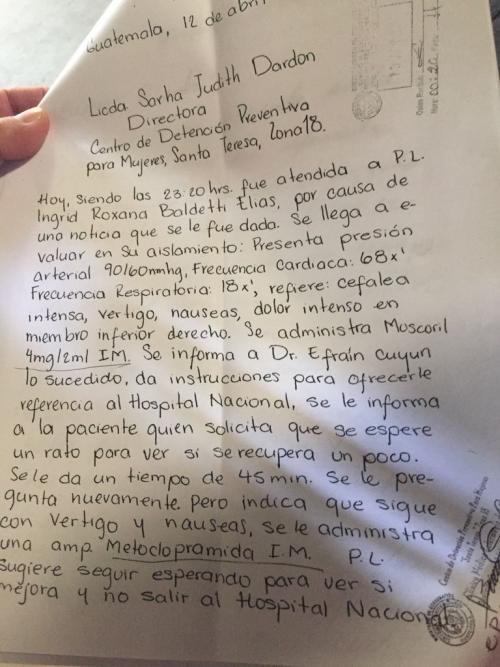 Guatemala, 12 de abril
Licda Sarha Judith Dardon
Directora
Centro de Detención Preventiva
para Mujeres, Santa Teresa, Zona 18.
Hoy, siendo las 23:20 hrs. fue atendida a P.L.
Ingrid Roxana Baldetti Elias, por causa de
una noticia que se le fue dada. Se llega a e-
valuar en su aislamiento: Presenta presión
arterial 90/60mmhg, Frecuencia Cardiaca: 68x'
Frecuencia Respiratoria: 18x', refiere: cefalea
intensa, vertigo, nauseas, dolor intenso en
miembro inferior derecho. Se administra Muscoril
4mg/2ml I.M. Se informa a Dr. Efraín Cuyun
lo sucedido, da instrucciones para ofrecerle
referencia al Hospital Nacional, se le informa
a la paciente quien solicita que se espere
un rato para ver si se recupera un poco.
Se le da un tiempo de 45 min. Se le pre-
gunta nuevamente. Pero indica que sigue
con vertigo y nauseas, se le administra
una amp. Metoclopramida I.M. P.L.
sugiere seguir esperando para ver si
mejora y no salir al Hospital Nacional